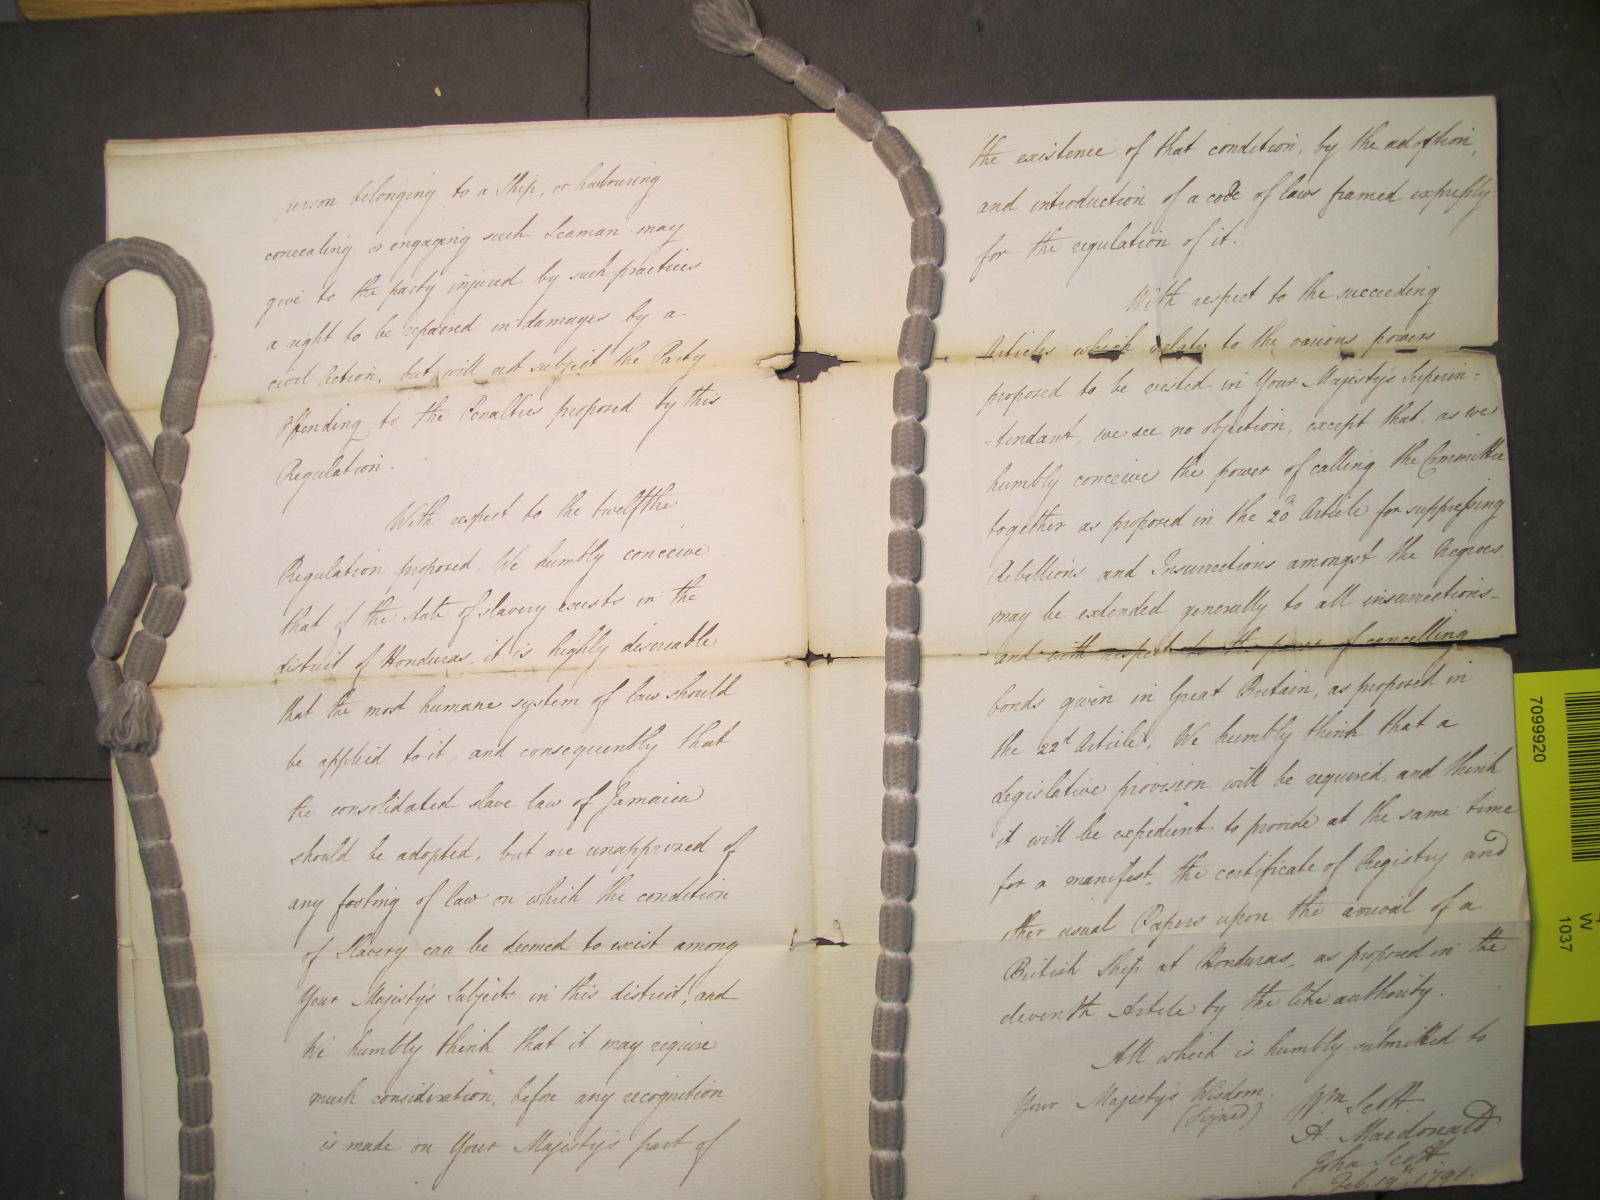 person belonging to a Ship, or harbouring
concealing or engaging such Seaman may
give to the party injured by such practices
a right to be repaired in damages by a
civil Action, but will not subject the Party
offending to the Penalties proposed by this
Regulation.
With respect to the twelfth
Regulation proposed, We humbly conceive
that if the state of slavery exists in the
district of Honduras, it is highly desireable
that the most humane system of law should
be applied to it, and consequently that
the consolidated slave law of Jamaica
should be adopted, but are unapprized of
any footing of law on which the condition
of Slavery can be deemed to exist among
Your Majesty's Subjects in this district, and
We humbly think that it may require
much consideration, before any recognition
is made on Your Majesty's part of
the existence of that condition, by the adoption,
and introduction of a code of laws framed expressly
for the regulation of it.
With respect to the succeeding
Articles which relate to the various powers
proposed to be vested in Your Majesty's Superin=
=tendant, we see no objection, except that, as we
humbly conceive the power of calling the Committee
together as proposed in the 20th Article for suppressing
Rebellions and Insurrections amongst the Negroes,
may be extended generally to all insurrections–
and with respect to the power of cancelling
bonds given in Great Britain, as proposed in
the 22d Article, We humbly think that a
Legislative provision will be required, and think
it will be expedient to provide at the same time
for a manifest, the certificate of Registry and
other usual Papers upon the arrival of a
British Ship at Honduras, as proposed in the
eleventh Article by the like authority.
All which is humbly submitted to
Your Majesty's Wisdom.
(Signed) Wm Scott.
A. Macdonald
John Scott
Feb. 19th 1791.
7099920
W
1037